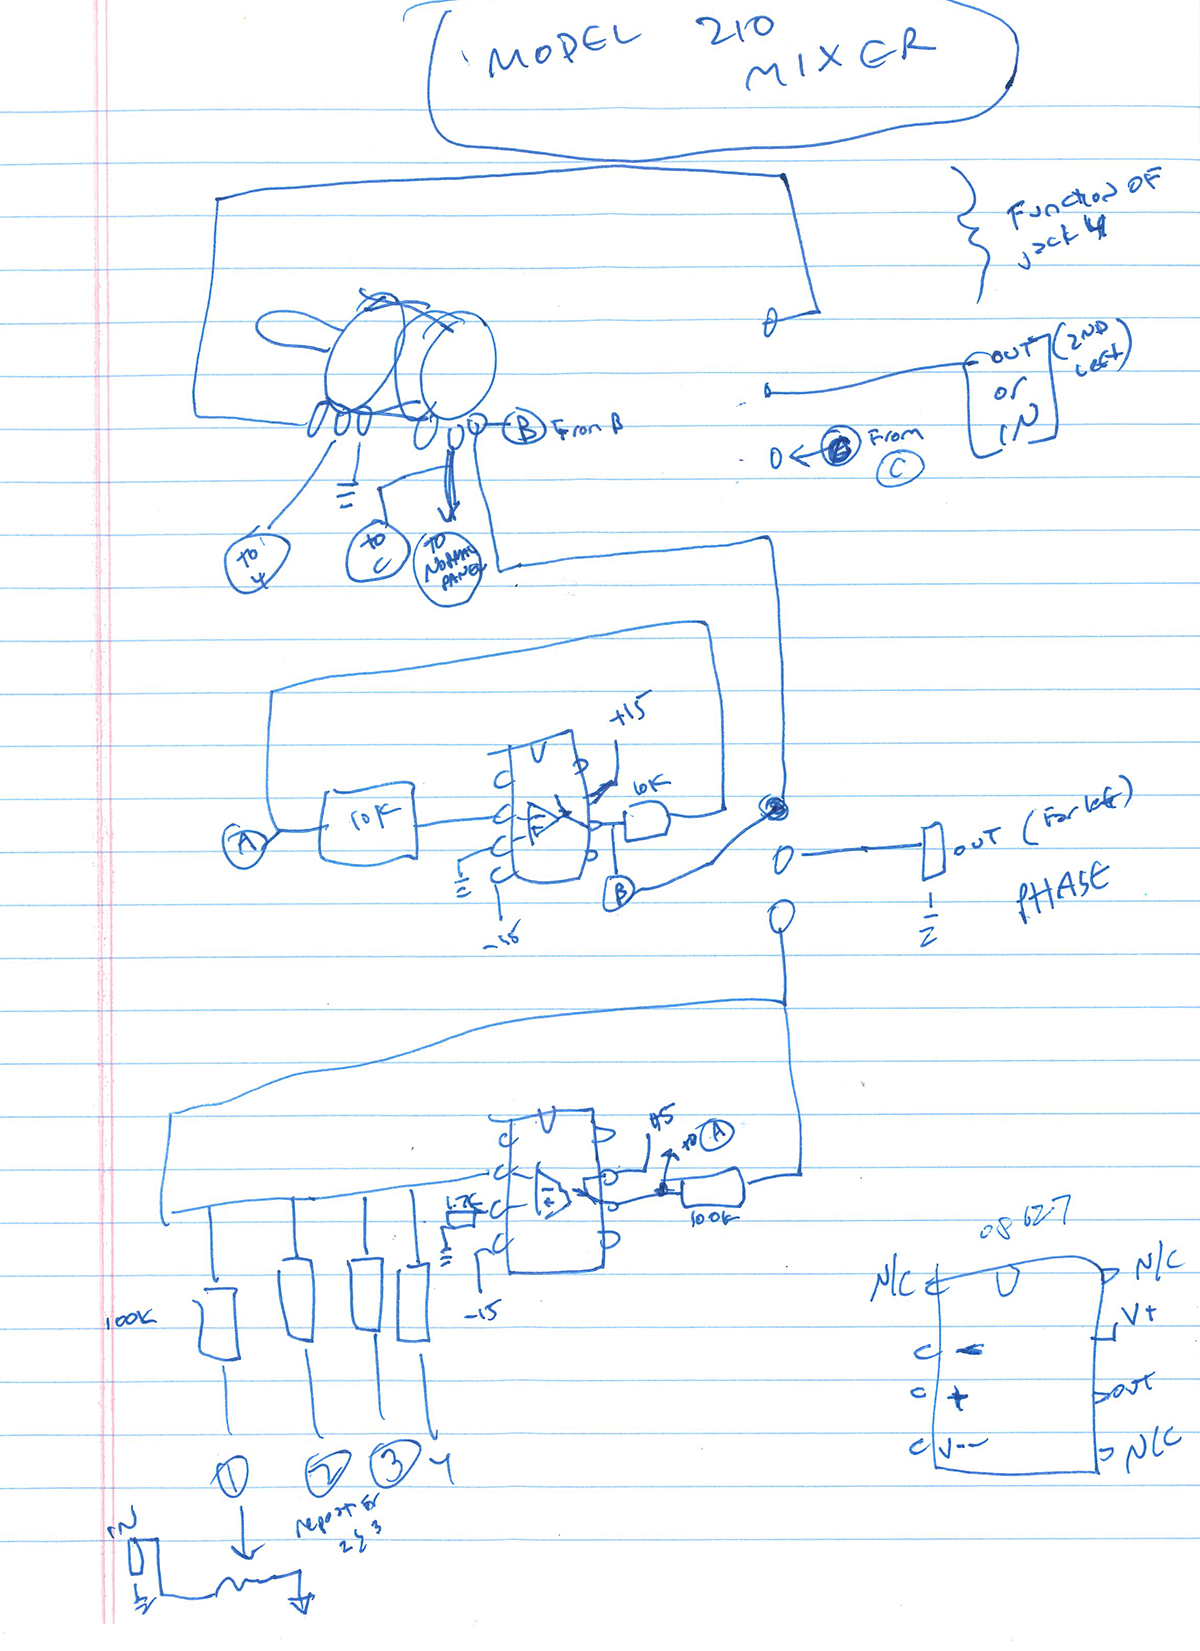 MODEL 210
MIXER
Function OF
jack 4
OUT
or
IN
(2ND
Left)
B From B
From
C
to
4
to
C
TO
NORMAL
PANEL
+15
10K
10K
A
B
-15
OUT (Far left)
PHASE
+15
to A
1.2K
100K
-15
100K
1
2
3
4
repeat for
2 & 3
IN
N/C
N/C
V+
-
+
OUT
V--
N/C